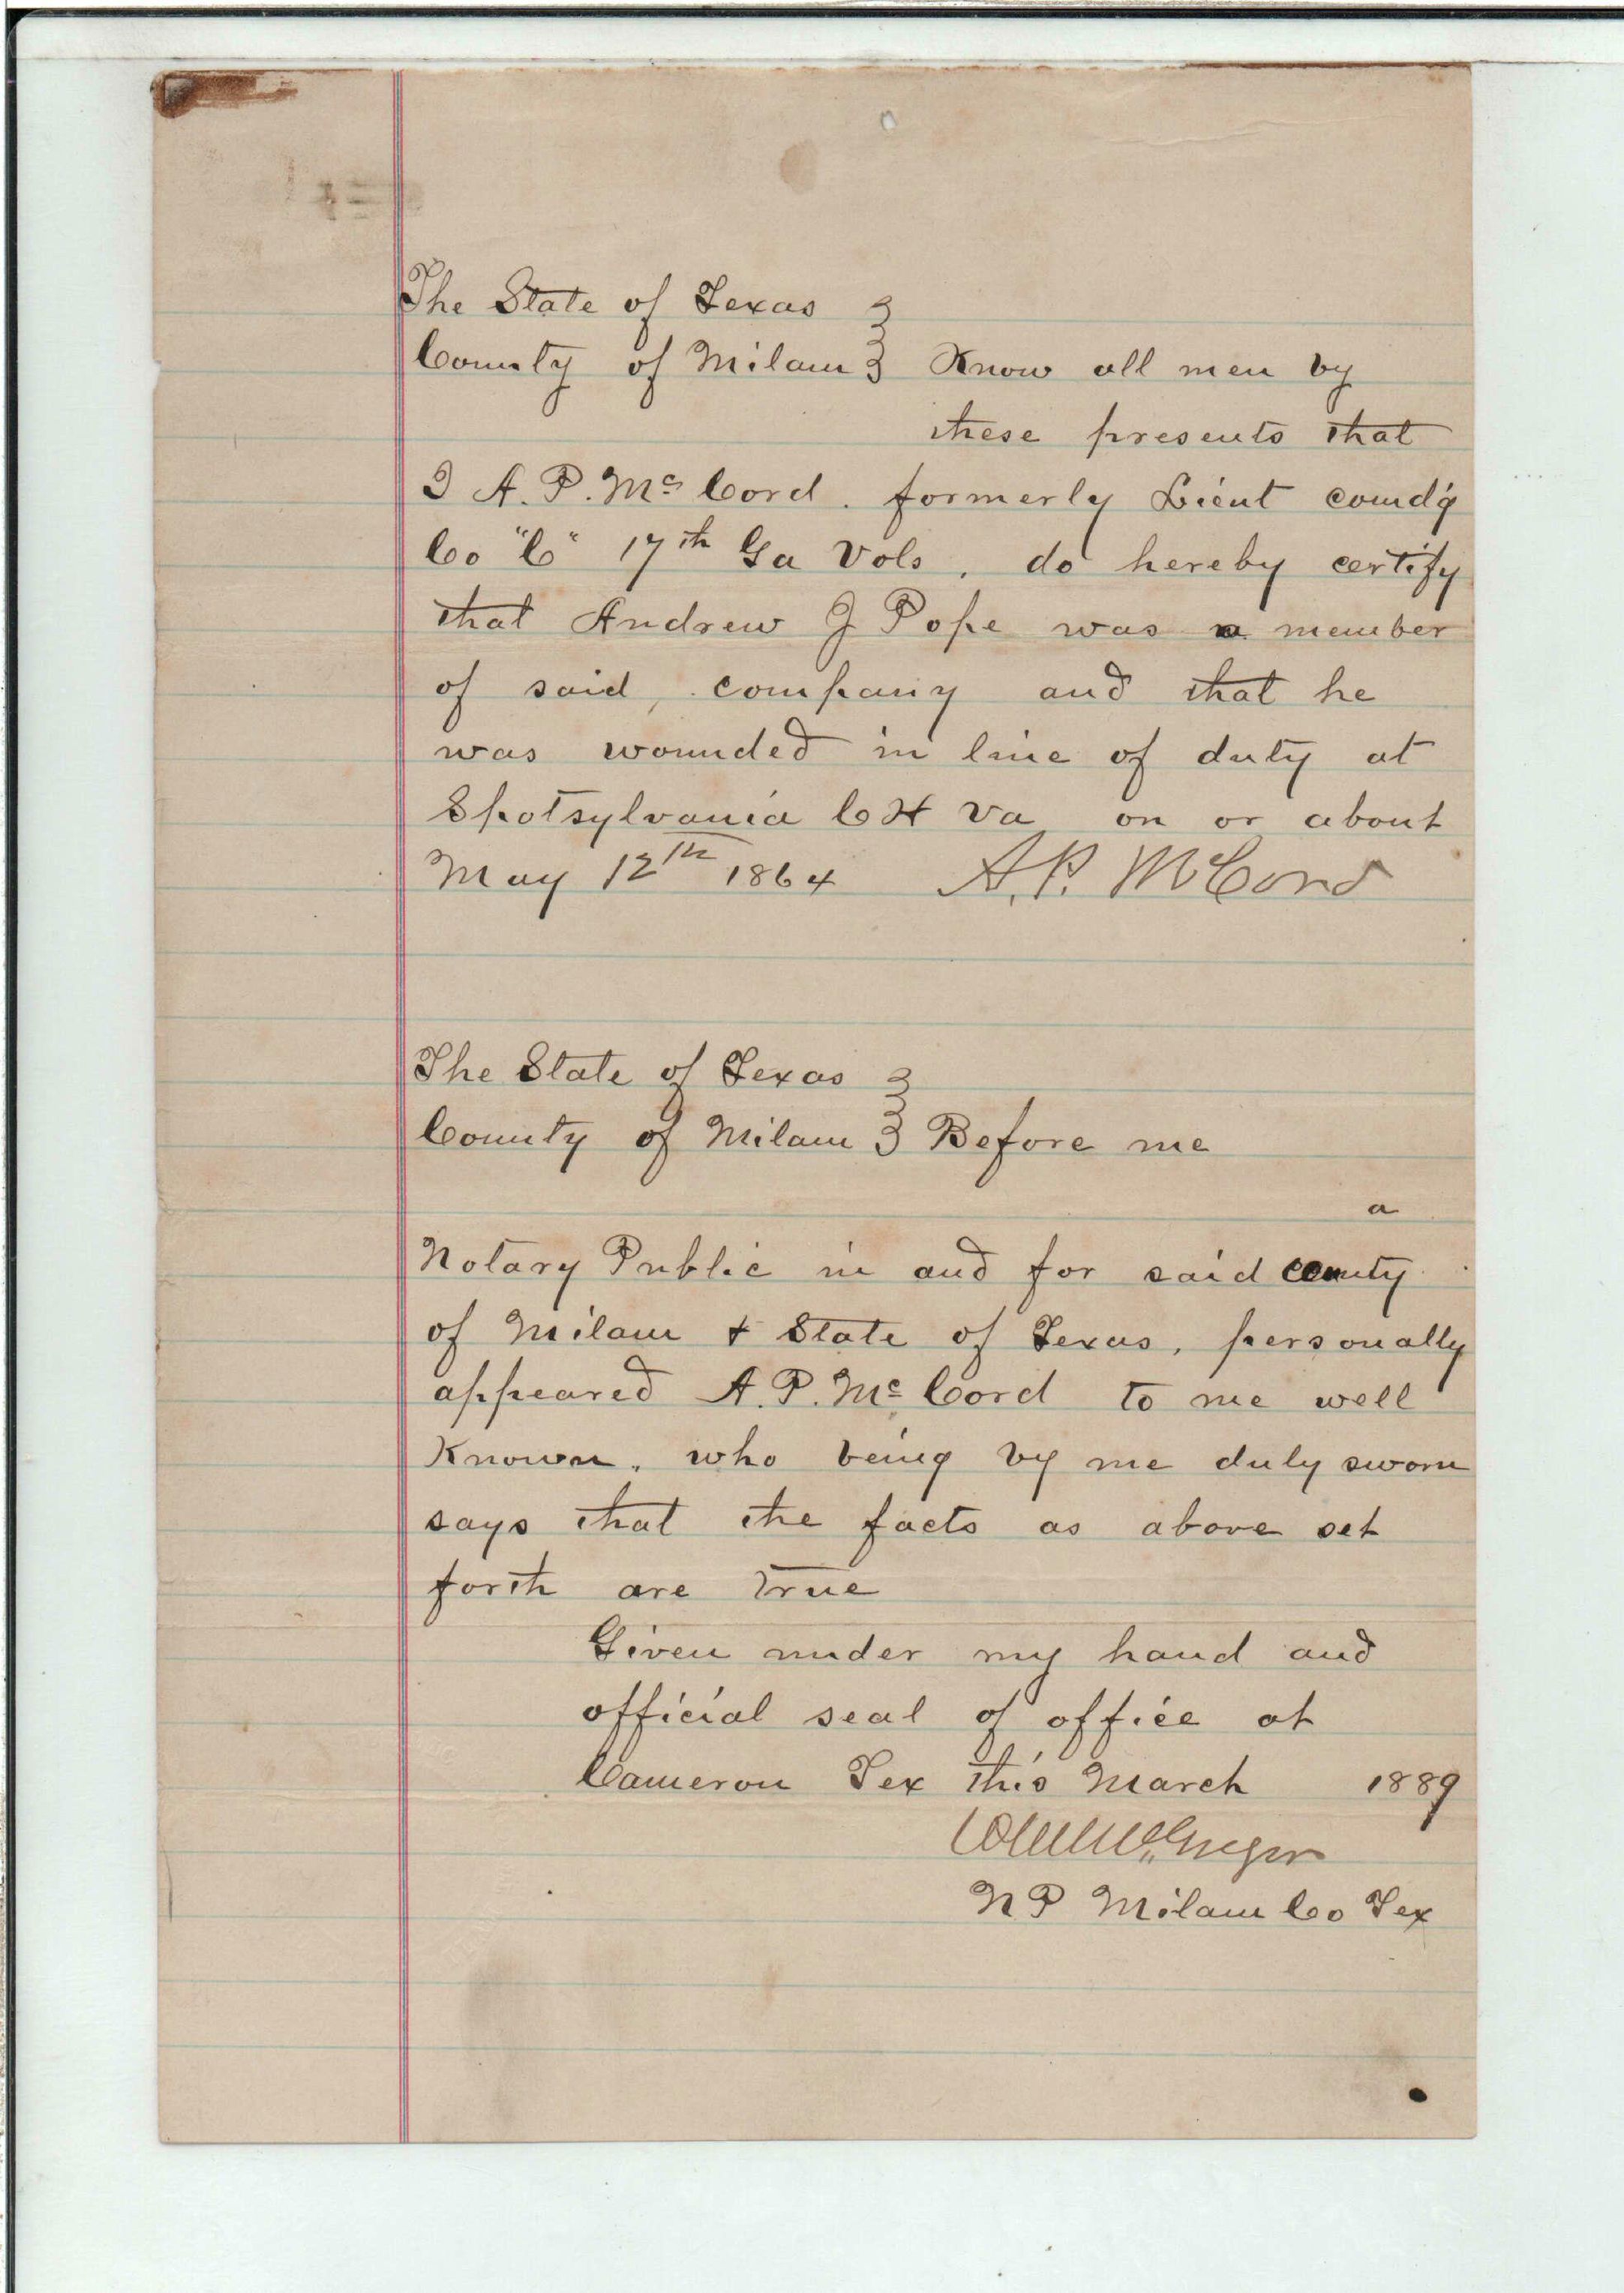 The State of Texas
County of Milam Know all men by
these presents that
I A. P. Mc Cord. formerly Lieut comd'g
Co "C" 17th Ga Vols, do hereby certify
that Andrew J Pope was a member
of said, company and that he
was wounded in line of duty at
Spotsylvania C H Va on or about
May 12th 1864 A. P. McCord
The State of Texas
County of Milam Before me
a
Notary Public in and for said county
of Milam & State of Texas, personally
appeared A. P. Mc Cord to me well
Known, who being by me duly sworn
says that the facts as above set
forth are true
Given under my hand and
official seal of office at
Cameron Tex this March 1889
McGregor
N P Milam Co Tex